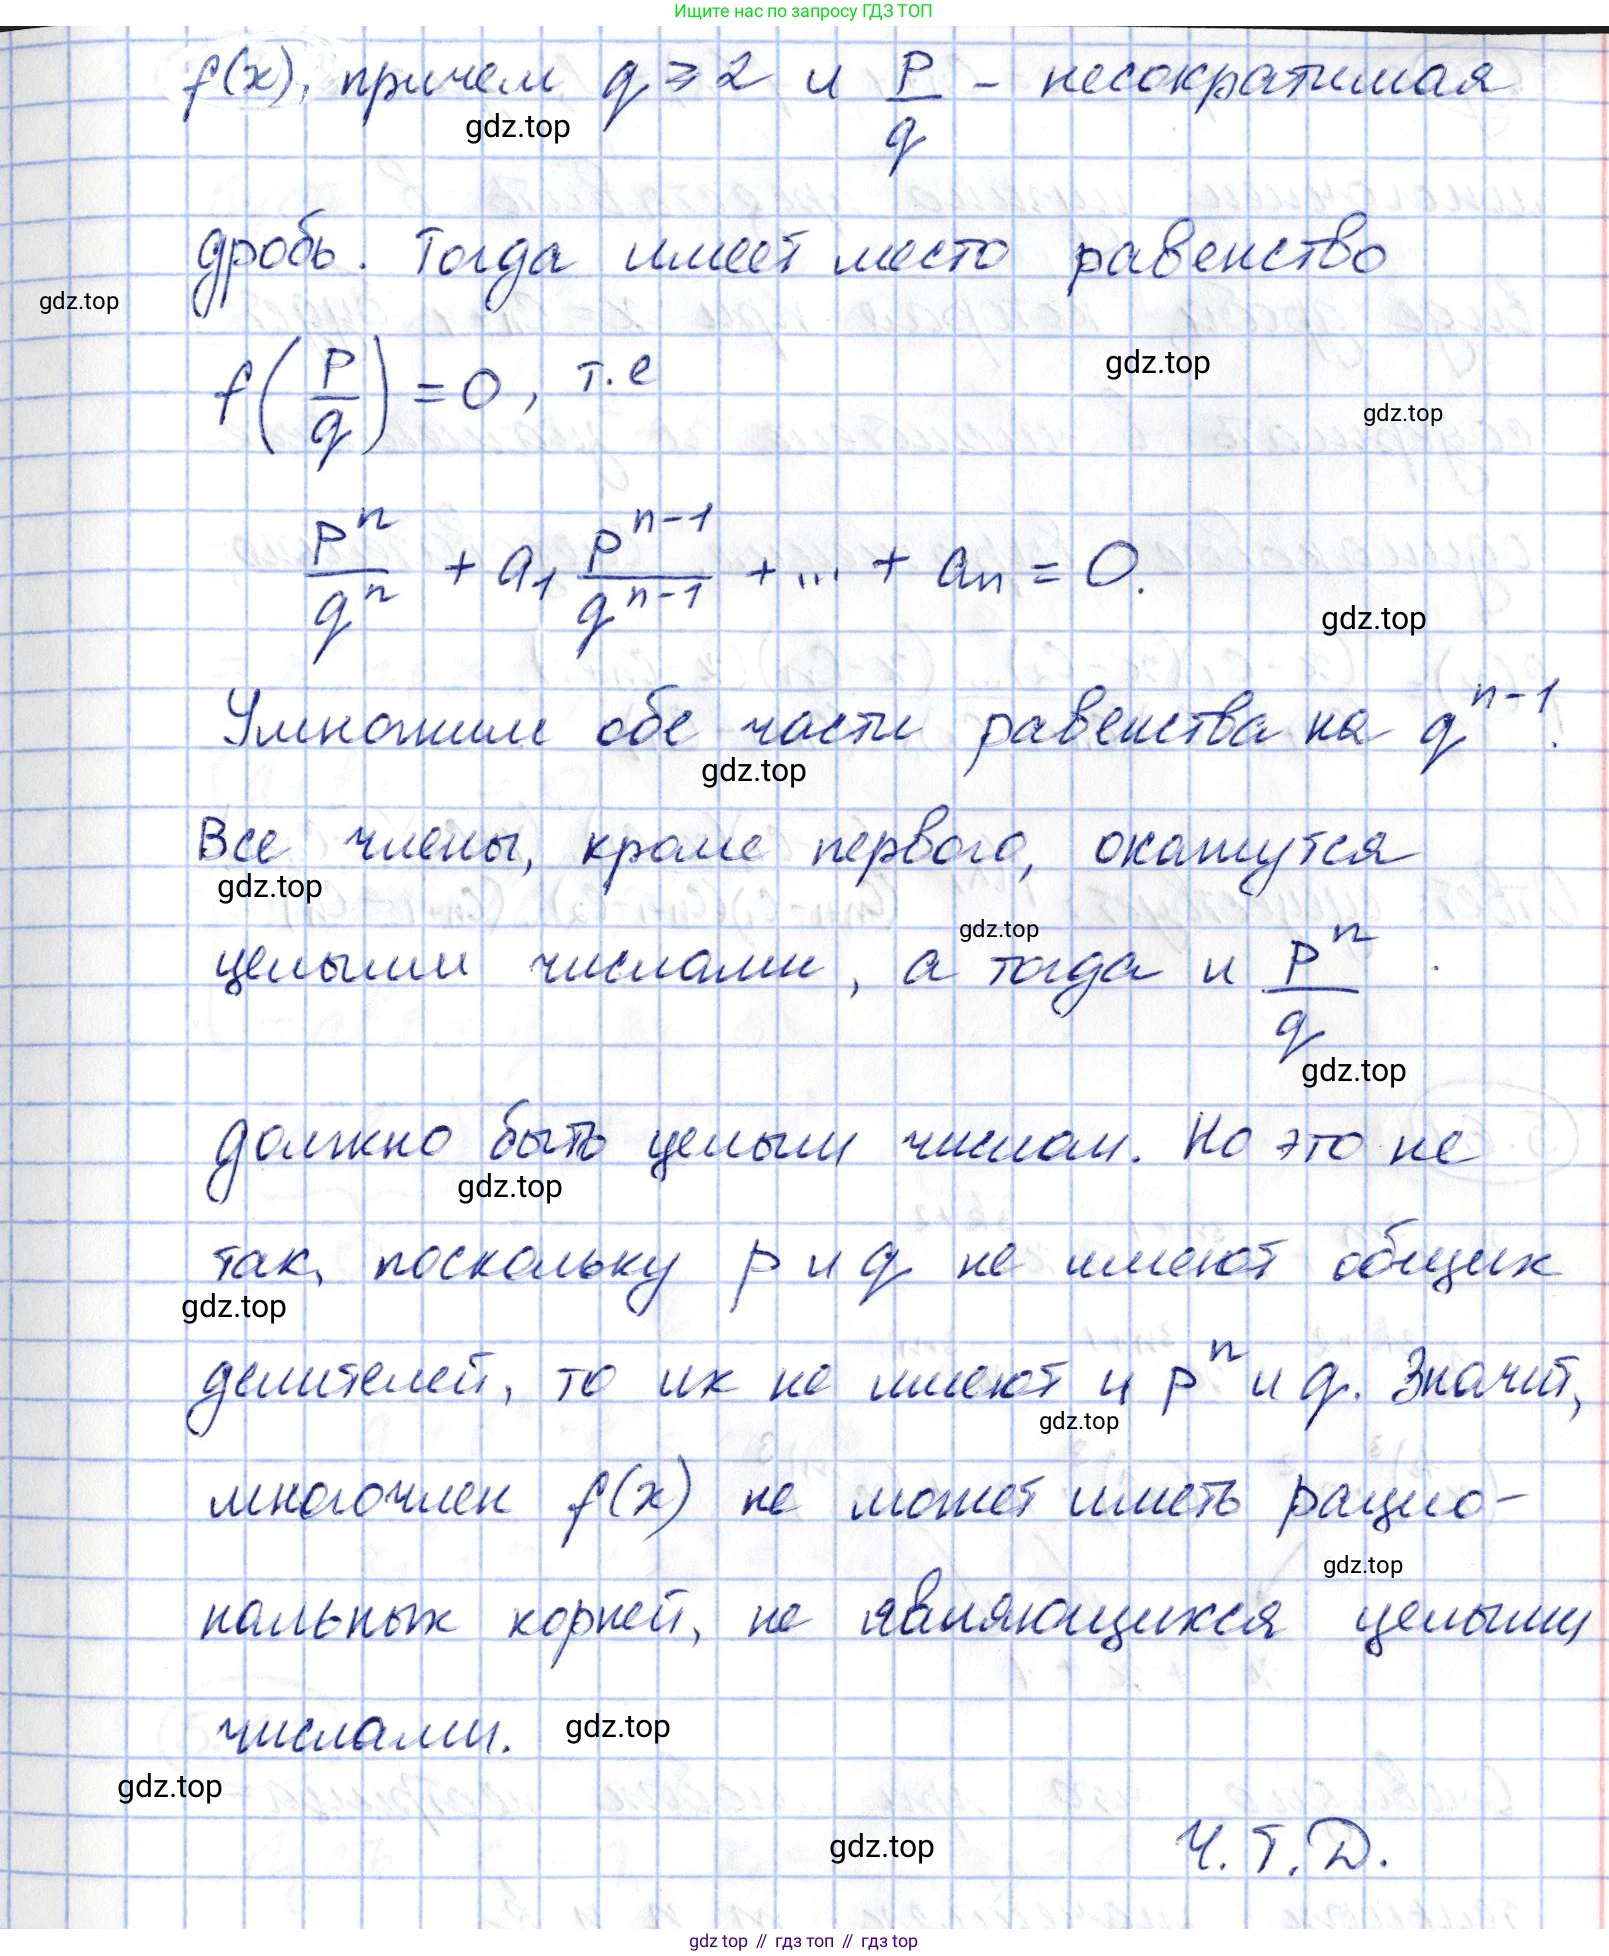 Ищите нас по запросу ГДЗ ТОП
f(x), причем q ⩾ 2 и p/q - несократимая
gdz.top
дробь. Тогда имеет место равенство
gdz.top
gdz.top
f(p/q) = 0, т.е
gdz.top
p^n/q^n + a₁ p^(n-1)/q^(n-1) + ... + aₙ = 0.
gdz.top
Умножим обе части равенства на q^(n-1).
gdz.top
Все члены, кроме первого, окажутся
gdz.top
gdz.top
целыми числами, а тогда и p^n/q
gdz.top
должно быть целым числом. Но это не
gdz.top
так, поскольку p и q не имеют общих
gdz.top
делителей, то их не имеют и p^n и q. Значит,
gdz.top
многочлен f(x) не может иметь рацио-
gdz.top
нальных корней, не являющихся целыми
числами.
gdz.top
gdz.top
gdz.top
Ч.Т.Д.
gdz top // гдз топ // гдз top